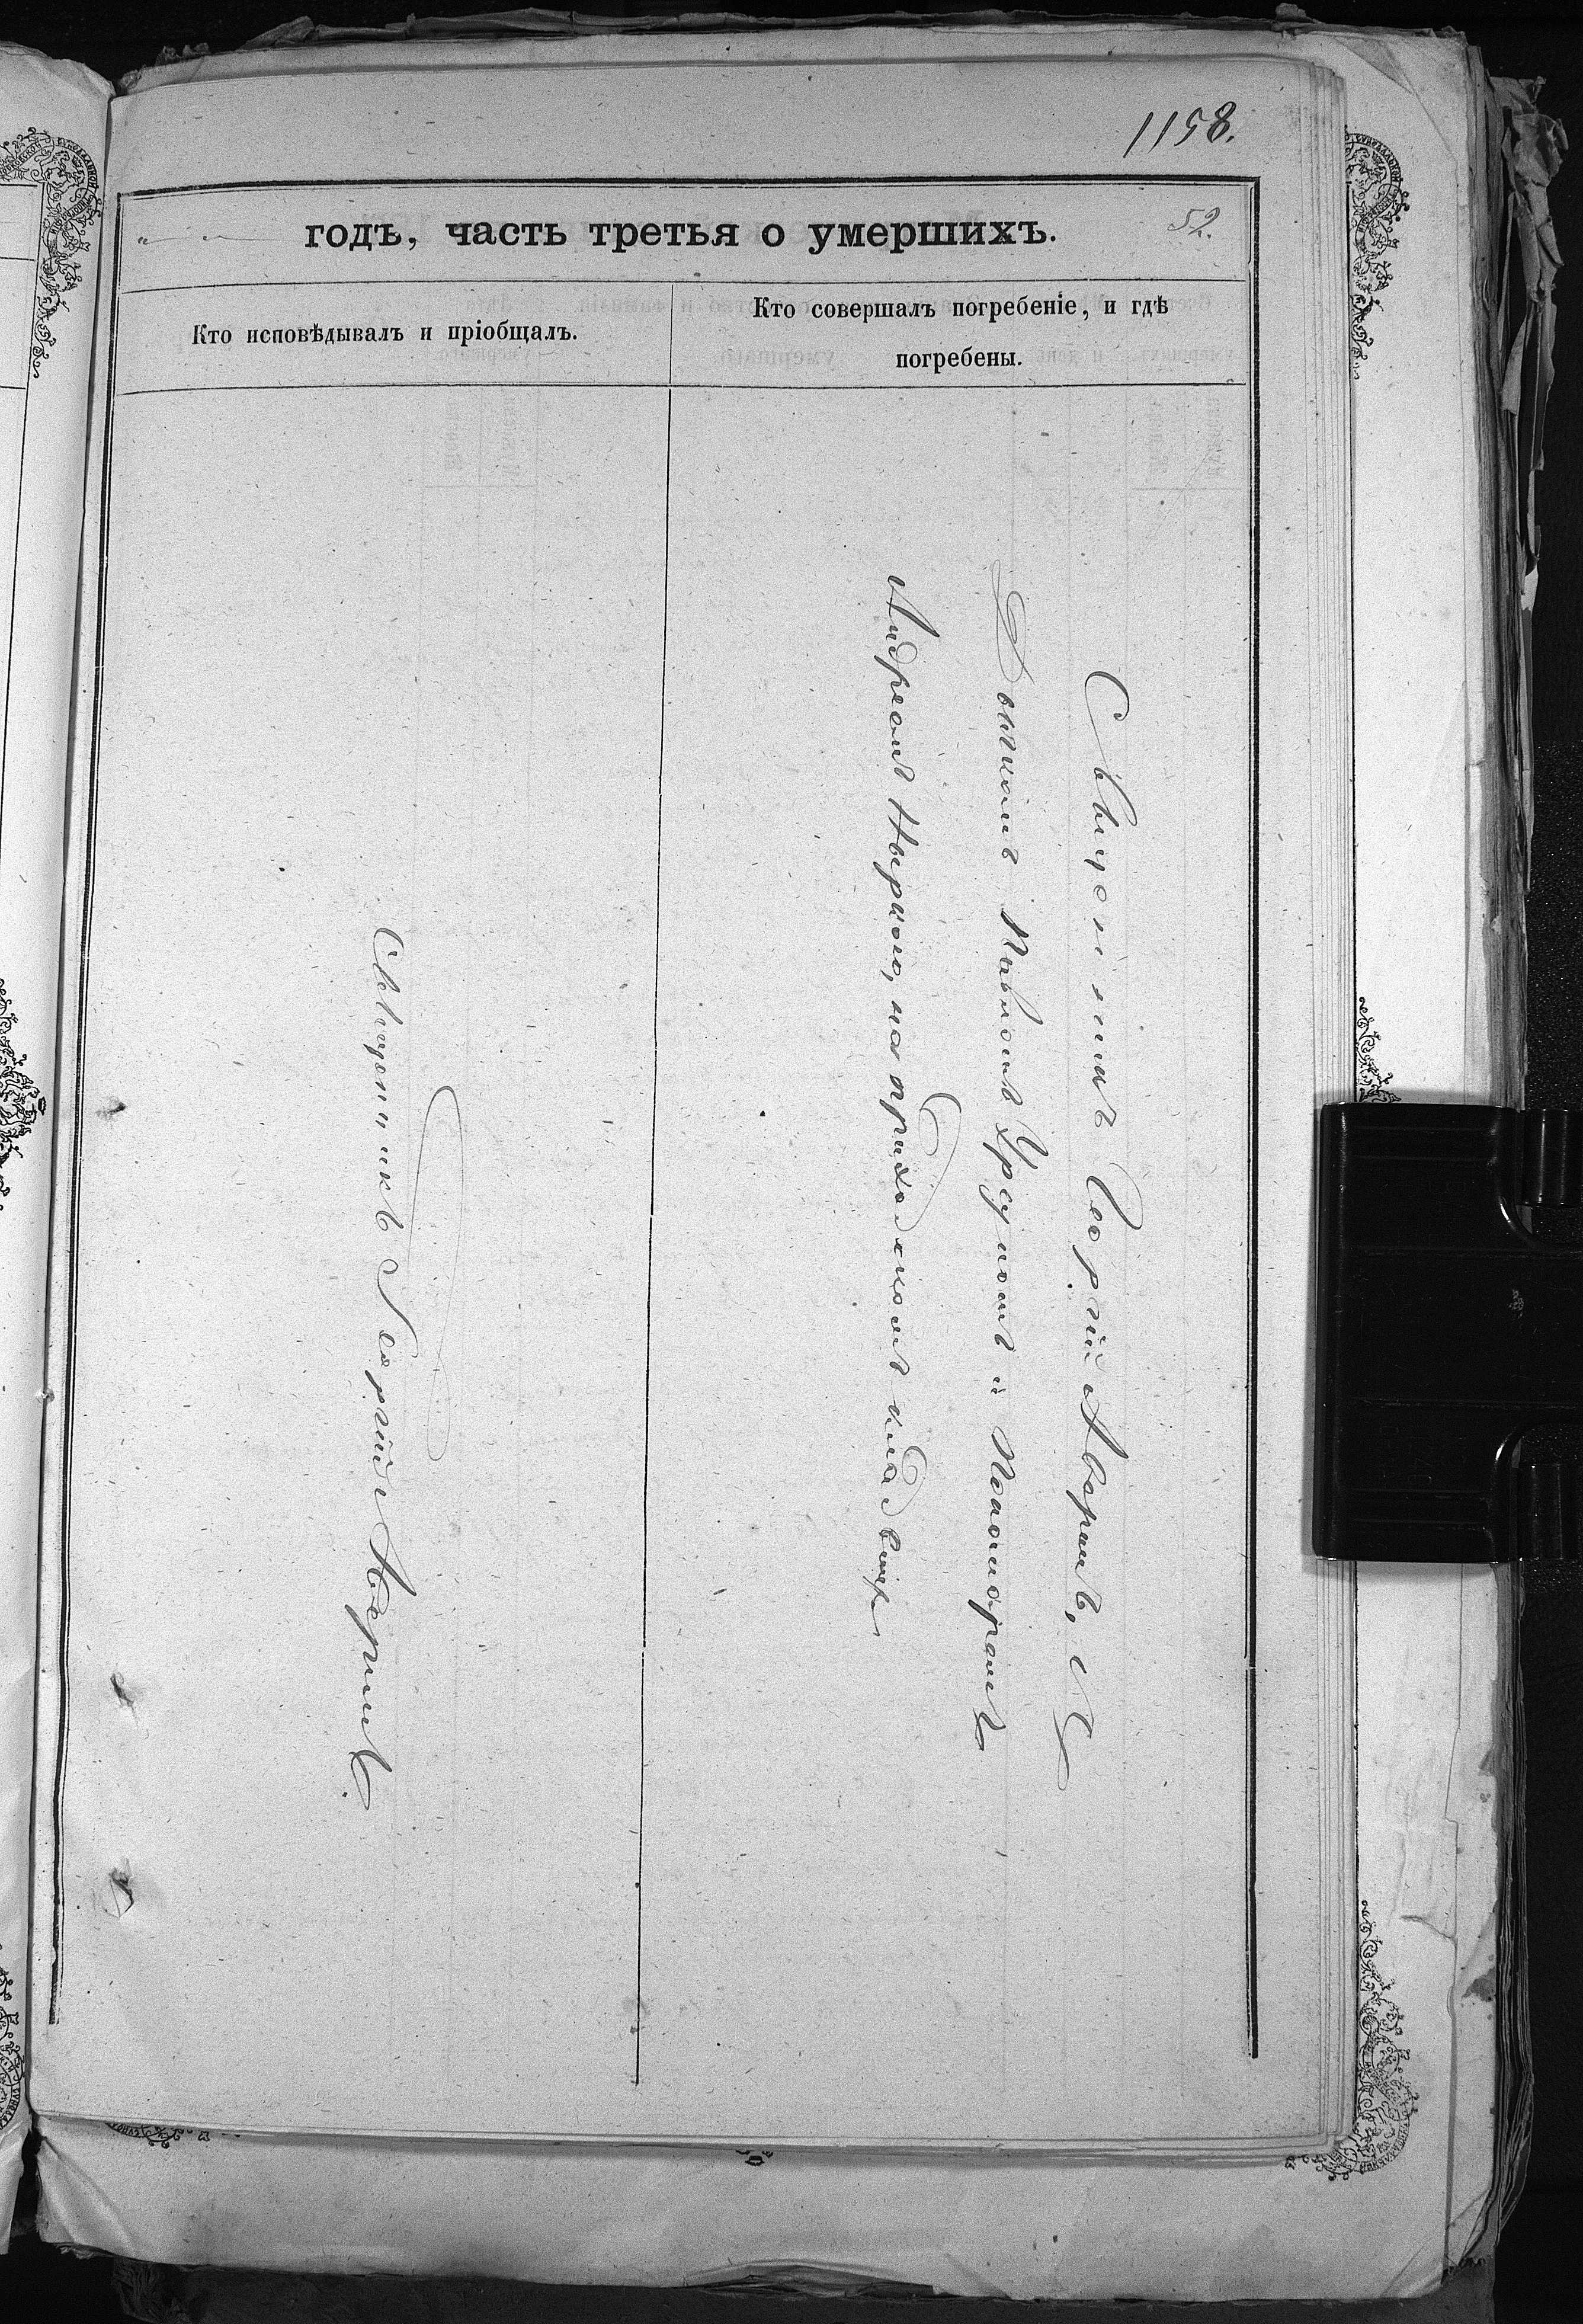 1158.
годъ, часть третья о умершихъ.
52.
Кто исповѣдывалъ и пріобщалъ.
Кто совершалъ погребеніе, и гдѣ
погребены.
Священникъ Георгій Аворинъ
Священникъ Георгій Аворинъ, съ
Дьякомъ Павломъ Урсуломъ и Пономаремъ
Андреемъ на приходскомъ кладбищѣ